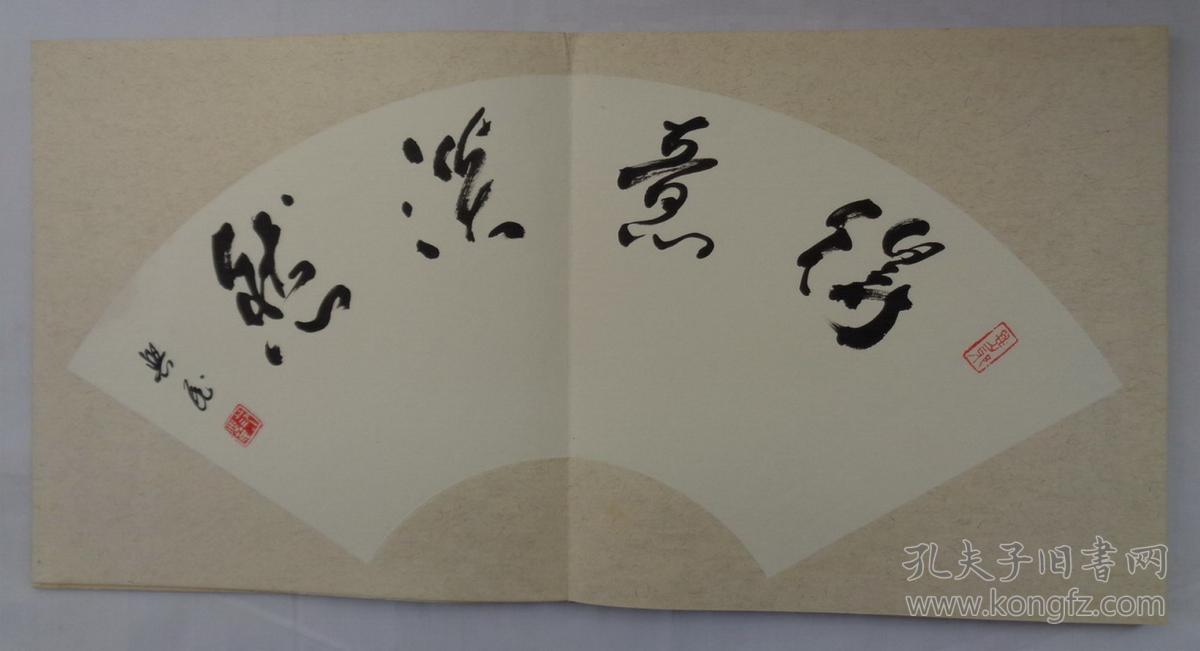 得意淡然
孔夫子旧书网
www.kongfz.com